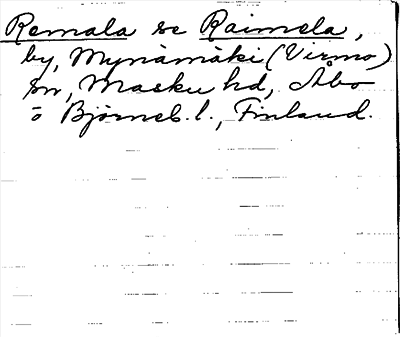 Remala se Raimela,
by, Mynämäki (Virmo)
sn, Masku hd, Åbo
o Björneb. l., Finland.